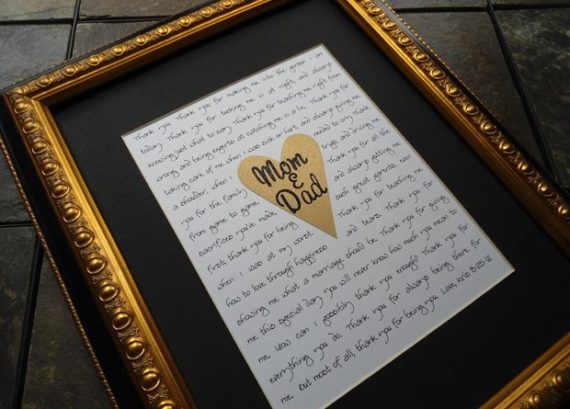 Thank you. Thank you for making me into the person I am
today. Thank you for tucking me in at night, and always
knowing just what to say. Thank you for teaching me right from
wrong and being experts at catching me in a lie. Thank you for
taking care of me when I was sick or hurt, and always giving me
a shoulder, when I needed to cry. Thank
you for the family trips and driving me
from game to game. Thank you for all the
sacrifices you've made, and always putting me
first, thank you for being such great parents, even
when I was at my worst. Thank you for teaching me
how to love through happiness and tears. Thank you for
showing me what a marriage should be. Thank you for giving
me this special day, you will never know how much you mean to
me. How can I possibly thank you enough? Thank you for
everything you do. Thank you for always being there for
me. but most of all, thank you for being you. Love, Kris 8-25-12
Mom
&
Dad